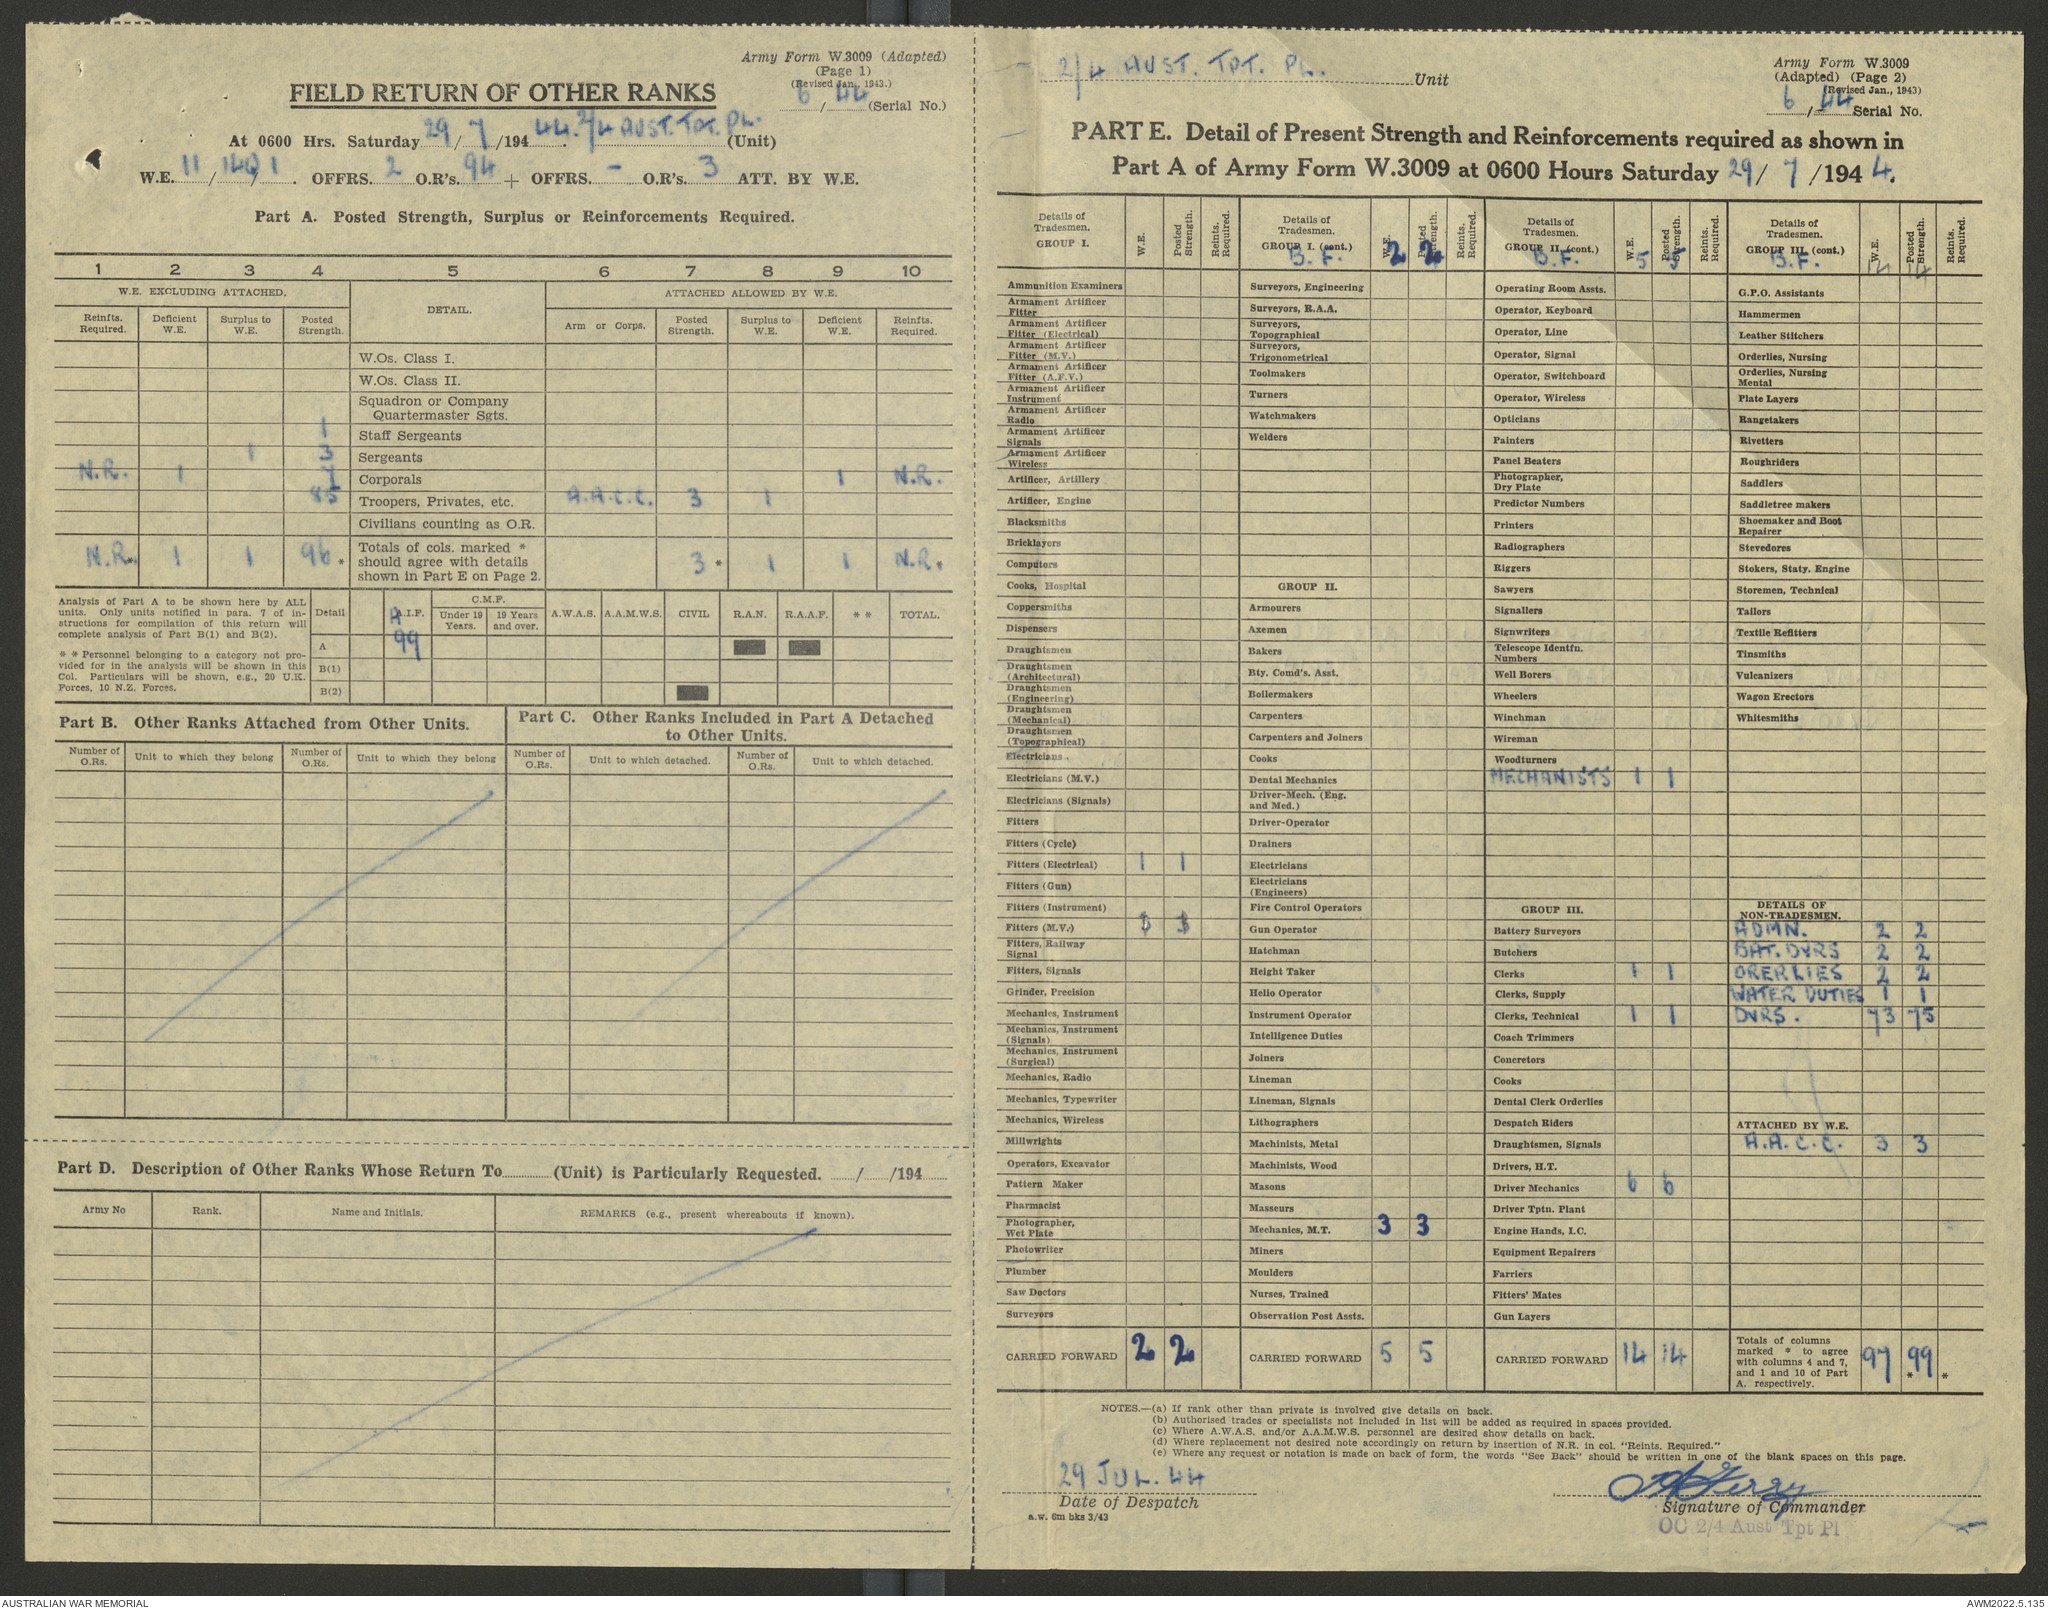 Army Form W.3009 (Adapted)
(Page 1)
(Revised Jan., 1943.)
FIELD RETURN OF OTHER RANKS
6 / 44 (Serial No.)
At 0600 Hrs. Saturday 29 / 7 /194 44. 2/4 AUST. TPT. PL. (Unit)
W.E. 11 / 140 / 1 . OFFRS. 2 O.R's. 94 + OFFRS. - O.R's. 3 ATT. BY W.E.
Part A. Posted Strength, Surplus or Reinforcements Required.
1 2 3 4 5 6 7 8 9 10
W.E. EXCLUDING ATTACHED. DETAIL. ATTACHED ALLOWED BY W.E.
Reinfts. Required. Deficient W.E. Surplus to W.E. Posted Strength. Arm or Corps. Posted Strength. Surplus to W.E. Deficient W.E. Reinfts. Required.
W.Os. Class I.
W.Os. Class II.
Squadron or Company
Quartermaster Sgts.
1 Staff Sergeants
1 3 Sergeants
N.R. 1 7 Corporals 1 N.R.
85 Troopers, Privates, etc. A.A.C.C. 3 1
Civilians counting as O.R.
N.R.* 1 1 96 * Totals of cols. marked * should agree with details shown in Part E on Page 2. 3 * 1 1 N.R.*
Analysis of Part A to be shown here by ALL
units. Only units notified in para. 7 of in-
structions for compilation of this return will
complete analysis of Part B(1) and B(2).
* * Personnel belonging to a category not pro-
vided for in the analysis will be shown in this
Col. Particulars will be shown, e.g., 20 U.K.
Forces, 10 N.Z. Forces.
Detail A.I.F. C.M.F. Under 19 Years. 19 Years and over. A.W.A.S. A.A.M.W.S. CIVIL R.A.N. R.A.A.F. * * TOTAL.
A 99
B(1)
B(2)
Part B. Other Ranks Attached from Other Units.
Number of O.Rs. Unit to which they belong Number of O.Rs. Unit to which they belong
Part C. Other Ranks Included in Part A Detached
to Other Units.
Number of O.Rs. Unit to which detached. Number of O.Rs. Unit to which detached.
Part D. Description of Other Ranks Whose Return To (Unit) is Particularly Requested. / /194
Army No Rank. Name and Initials. REMARKS (e.g., present whereabouts if known).
2/4 AUST. TPT. PL. Unit
Army Form W.3009
(Adapted) (Page 2)
(Revised Jan., 1943)
6 / 44 Serial No.
PART E. Detail of Present Strength and Reinforcements required as shown in
Part A of Army Form W.3009 at 0600 Hours Saturday 29 / 7 /194 4.
Details of Tradesmen. GROUP I. W.E. Posted Strength. Reints. Required.
Ammunition Examiners
Armament Artificer Fitter
Armament Artificer Fitter (Electrical)
Armament Artificer Fitter (M.V.)
Armament Artificer Fitter (A.F.V.)
Armament Artificer Instrument
Armament Artificer Radio
Armament Artificer Signals
Armament Artificer Wireless
Artificer, Artillery
Artificer, Engine
Blacksmiths
Bricklayers
Computors
Cooks, Hospital
Coppersmiths
Dispensers
Draughtsmen
Draughtsmen (Architectural)
Draughtsmen (Engineering)
Draughtsmen (Mechanical)
Draughtsmen (Topographical)
Electricians
Electricians (M.V.)
Electricians (Signals)
Fitters
Fitters (Cycle)
Fitters (Electrical) 1 1
Fitters (Gun)
Fitters (Instrument)
Fitters (M.V.)
Fitters, Railway Signal
Fitters, Signals
Grinder, Precision
Mechanics, Instrument
Mechanics, Instrument (Signals)
Mechanics, Instrument (Surgical)
Mechanics, Radio
Mechanics, Typewriter
Mechanics, Wireless
Millwrights
Operators, Excavator
Pattern Maker
Pharmacist
Photographer, Wet Plate
Photowriter
Plumber
Saw Doctors
Surveyors
CARRIED FORWARD 2 2
Details of Tradesmen. GROUP I. (cont.) B.F. W.E. 2 Posted Strength. 2 Reints. Required.
Surveyors, Engineering
Surveyors, R.A.A.
Surveyors, Topographical
Surveyors, Trigonometrical
Toolmakers
Turners
Watchmakers
Welders
GROUP II.
Armourers
Axemen
Bakers
Bty. Comd's. Asst.
Boilermakers
Carpenters
Carpenters and Joiners
Cooks
Dental Mechanics
Driver-Mech. (Eng. and Med.)
Driver-Operator
Drainers
Electricians
Electricians (Engineers)
Fire Control Operators
Gun Operator
Hatchman
Height Taker
Helio Operator
Instrument Operator
Intelligence Duties
Joiners
Lineman
Lineman, Signals
Lithographers
Machinists, Metal
Machinists, Wood
Masons
Masseurs
Mechanics, M.T. 3 3
Miners
Moulders
Nurses, Trained
Observation Post Assts.
CARRIED FORWARD 5 5
Details of Tradesmen. GROUP II. (cont.) B.F. W.E. 5 Posted Strength. 5 Reints. Required.
Operating Room Assts.
Operator, Keyboard
Operator, Line
Operator, Signal
Operator, Switchboard
Operator, Wireless
Opticians
Painters
Panel Beaters
Photographer, Dry Plate
Predictor Numbers
Printers
Radiographers
Riggers
Sawyers
Signallers
Signwriters
Telescope Identfn. Numbers
Well Borers
Wheelers
Winchman
Wireman
Woodturners
MECHANISTS 1 1
GROUP III.
Battery Surveyors
Butchers
Clerks 1 1
Clerks, Supply
Clerks, Technical 1 1
Coach Trimmers
Concretors
Cooks
Dental Clerk Orderlies
Despatch Riders
Draughtsmen, Signals
Drivers, H.T.
Driver Mechanics 6 6
Driver Tptn. Plant
Engine Hands, I.C.
Equipment Repairers
Farriers
Fitters' Mates
Gun Layers
CARRIED FORWARD 14 14
Details of Tradesmen. GROUP III. (cont.) B.F. W.E. 14 Posted Strength. 14 Reints. Required.
G.P.O. Assistants
Hammermen
Leather Stitchers
Orderlies, Nursing
Orderlies, Nursing Mental
Plate Layers
Rangetakers
Rivetters
Roughriders
Saddlers
Saddletree makers
Shoemaker and Boot Repairer
Stevedores
Stokers, Staty. Engine
Storemen, Technical
Tailors
Textile Refitters
Tinsmiths
Vulcanizers
Wagon Erectors
Whitesmiths
DETAILS OF NON-TRADESMEN.
ADMN. 2 2
BAT. DVRS 2 2
ORERLIES 2 2
WATER DUTIES 1 1
DVRS. 73 75
ATTACHED BY W.E.
A.A.C.C. 3 3
Totals of columns marked * to agree with columns 4 and 7, and 1 and 10 of Part A. respectively. 97 * 99 *
NOTES.—(a) If rank other than private is involved give details on back.
(b) Authorised trades or specialists not included in list will be added as required in spaces provided.
(c) Where A.W.A.S. and/or A.A.M.W.S. personnel are desired show details on back.
(d) Where replacement not desired note accordingly on return by insertion of N.R. in col. "Reints. Required."
(e) Where any request or notation is made on back of form, the words "See Back" should be written in one of the blank spaces on this page.
29 JUL. 44
Date of Despatch
a.w. 6m bks 3/43
Signature of Commander
OC 2/4 Aust Tpt Pl
AUSTRALIAN WAR MEMORIAL
AWM2022.5.135